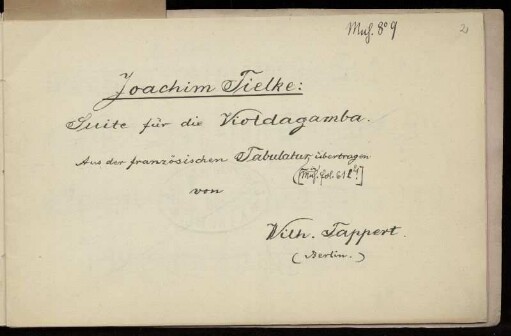 Mus. 8° 9
Joachim Tielke:
Suite für die Violdagamba.
Aus der französischen Tabulatur übertragen
[Mus. fol. 61
von
Wilh. Tappert.
(Berlin.)